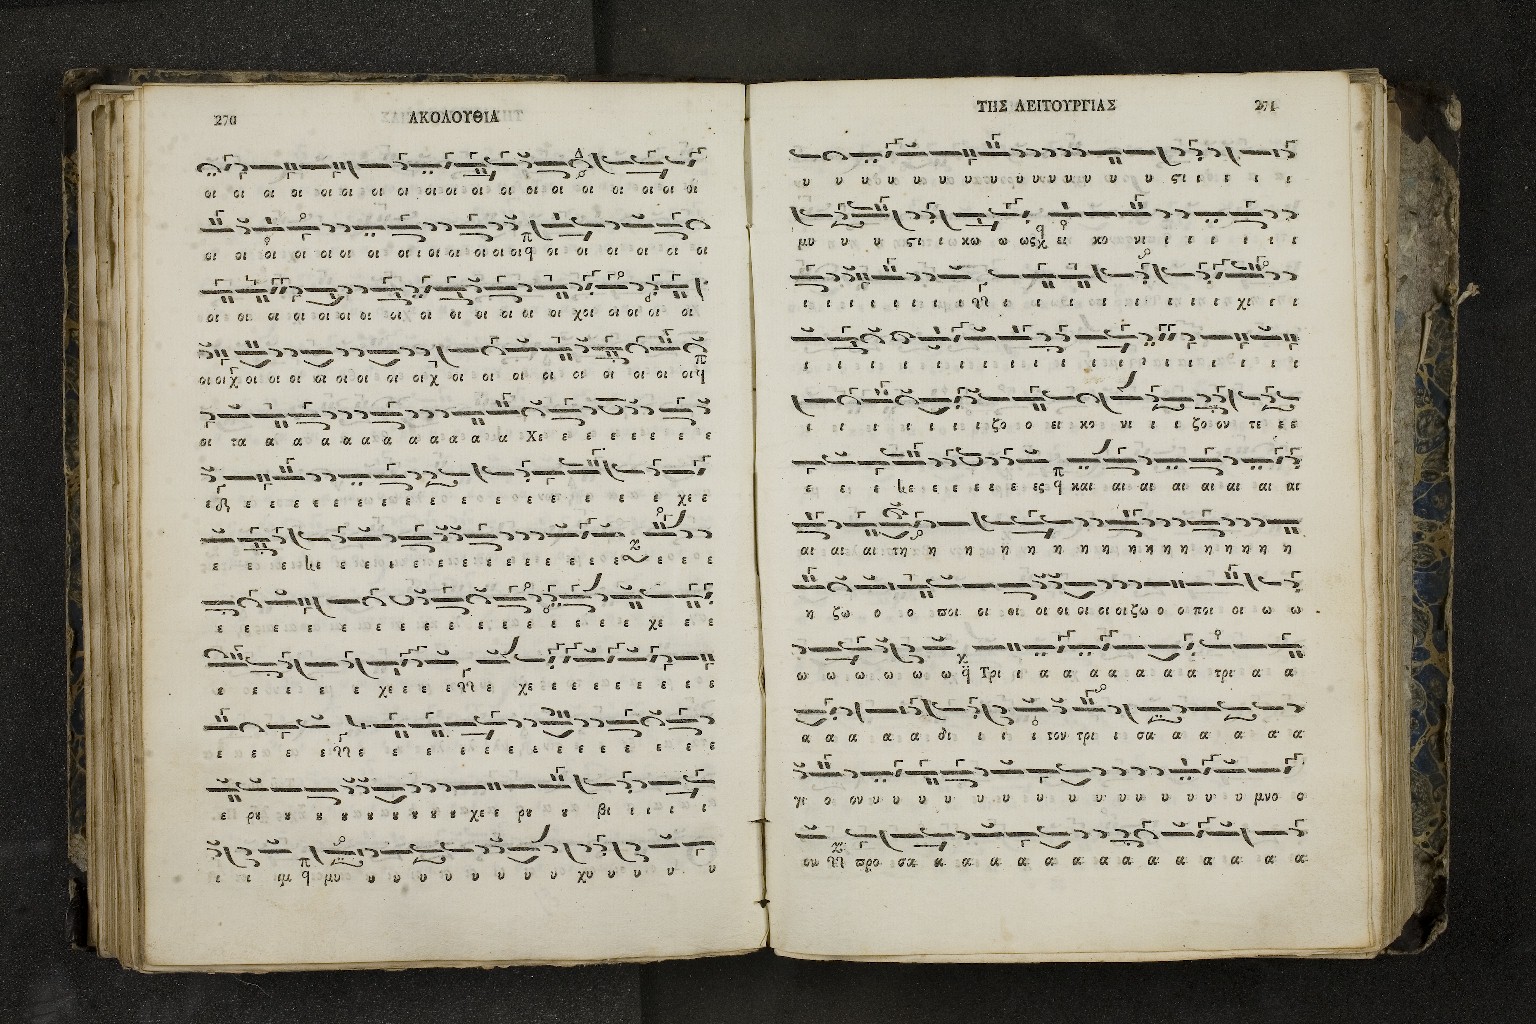 270 ΑΚΟΛΟΥΘΙΑ
οι οι οι οι οι οι οι οι οι οι οι οι οι οι οι οι οι οι οι οι οι
οι οι οι οι οι οι οι οι ι οι οι οι οι οι οι οι οι οι οι οι οι
οι οι οι οι οι οι οι οι οι οι οι οι οι οι χοι οι οι οι οι
οι οι χ οι οι οι οι οι οι οι οι χ οι οι οι οι οι οι οι οι οι
οι τα α α α α α α α α α α Χε ε ε ε ε ε ε ε
ε ε ε ε ε ε ε ε ε ε ε ε ε ε ε ε ε χε ε
ε ε ε ε ε ε ε ε ε ε ε ε ε ε ε ε ε ε
ε ε ε ε ε ε ε ε ε ε ε ε ε ε ε χε ε ε
ε ε ε ε ε ε χε ε ε ε ε χε ε ε ε ε ε ε ε
ε ε ε ε ε ε ε ε ε ε ε ε ε ε ε ε
ε ρȣ ȣ ȣ ȣ ȣ ȣ ȣ ȣ ȣ ȣ χε ρȣ ȣ βι ι ι ι ι
ι ι ιμ μυ υ υ υ υ υ υ υ υ χυ υ υ υ υ υ
ΤΗΣ ΛΕΙΤΟΥΡΓΙΑΣ 271
υ υ υ υ υ υ υ υ υ υ υ υ υ υ υ ςι ι ι ι ι
μυ υ υ υ ςι ι κω ω ως ει κο νι ι ι ι ι ι ι
ι ι ι ι ι ι ι ι ι ι ι ι ι ι ι ι χι ι ι
ι ι ι ι ι ι ι ι ι ι ι ι ι ι ι ι ι ι
ι ι ι ι ι ι ι ζο ο ει κο νι ι ι ζο ον τε ε ε
ε ε ε ε ε ε ε ε ε ες και αι αι αι αι αι αι αι
αι αι αι τη η η η η η η η η η η η η η η η
η ζω ο ο ποι οι οι οι οι οι οι οι ζω ο ο ποι οι ω ω
ω ω ω ω ω ω Τρι ι α α α α α α α τρι α α
α α α α α δι ι ι ι τον τρι ι σα α α α α α
γι ο ον υ υ υ υ υ υ υ υ υ υ υ υ υ υ μνο ο
ον προ σα α α α α α α α α α α α α α α α